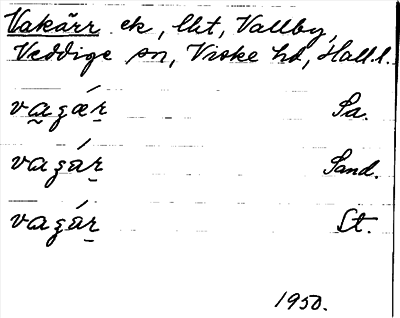 Vakärr ek, lht, Vallby,
Veddige sn, Viske hd, Hall.l.
va̰gǽr̠ Sa.
vagár̠ Sand.
vagár̠ St.
1950.